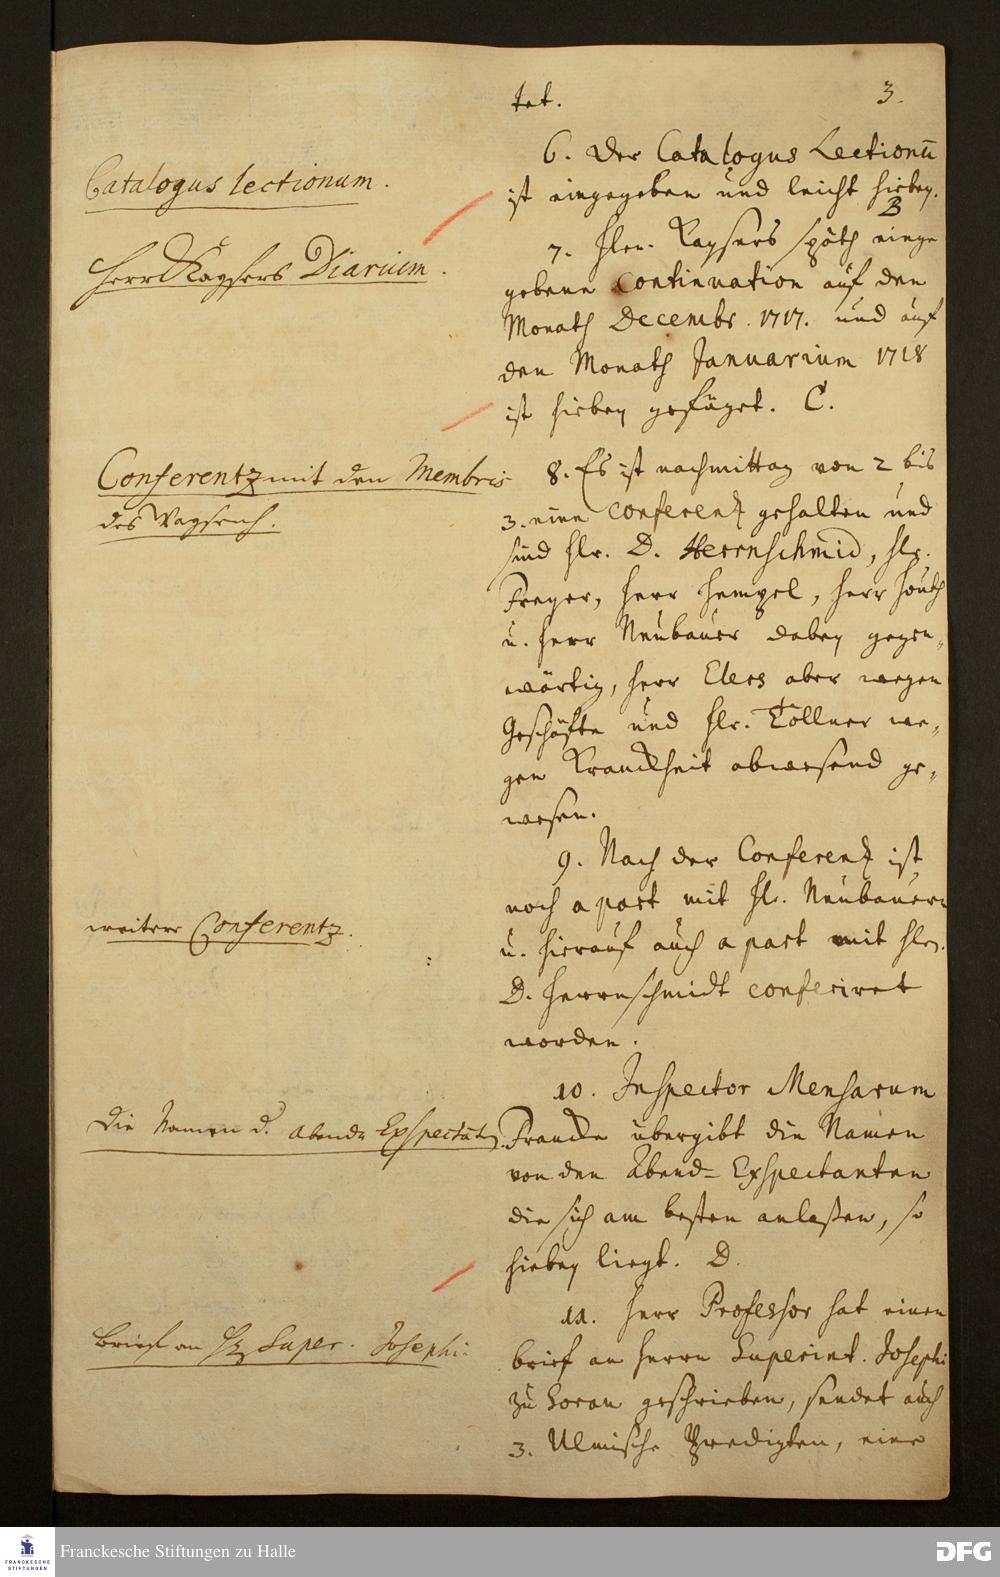 3.
tet.
6. Der Catalogus Lectionū
Catalogus lectionum.
ist eingegeben und leicht hiebey.
B
Herr Kaysers Diarium.
7. Hℓen. Kaysers späth einge
gebene Continuation auf den
Monath Decembr. 1717. und auf
den Monath Januarium 1718
ist hiebey gefüget. C.
Conferentz mit den Membris
des Waysenh.
8. Es ist nachmittag von 2 bis
3. eine Conferentz gehalten und
sind Hℓr. D. Herrnschmid, Hℓr.
Freyer, Herr Hempel, Herr
u. Herr Neubauer dabey gegen-
wärtig, Herr Elers aber wegen
Geschäfte und Hℓr. Töllner we-
gen Kranckheit abwesend ge-
wesen.
weitere Conferentz.
9. Nach der Conferentz ist
noch a part mit Hℓ. Neubauern
u. hierauf auch a part mit Hℓn.
D. Herrnschmidt conferiret
worden.
Die Namen d. abend- Exspectāt.
10. Inspector Mensarum
Francke übergibt die Namen
von den Abend- Exspectanten
die sich am besten anlaßen, so
hiebey liegt. D.
Brief an H. Super. Josephi.
11. Herr Professor hat einen
brief an Herrn Superint. Josephi
zu Soran geschrieben, sendet auch
3. Ulmische Predigten, eine
FRANCKESCHE
STIFTUNGEN
Franckesche Stiftungen zu Halle
DFG